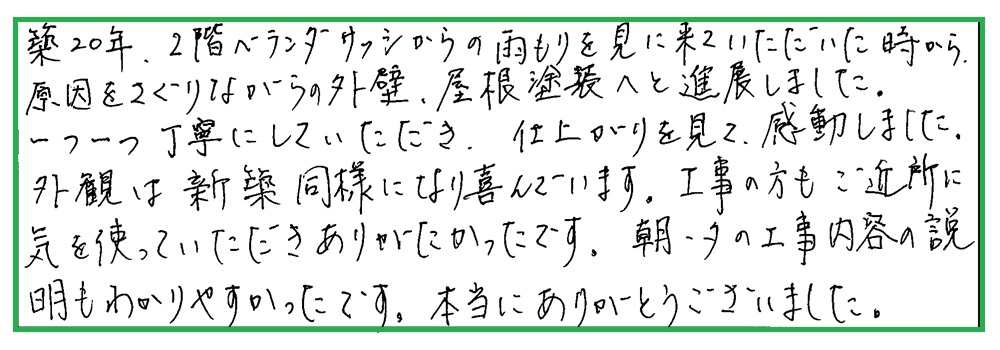 築20年、2階ベランダサッシからの雨もりを見に来ていただいた時から、
原因をさぐりながらの外壁、屋根塗装へと進展しました。
一つ一つ丁寧にしていただき、仕上がりを見て、感動しました。
外観は新築同様になり喜んでいます。工事の方もご近所に
気を使っていただきありがたかったです。朝・夕の工事内容の説
明もわかりやすかったです。本当にありがとうございました。